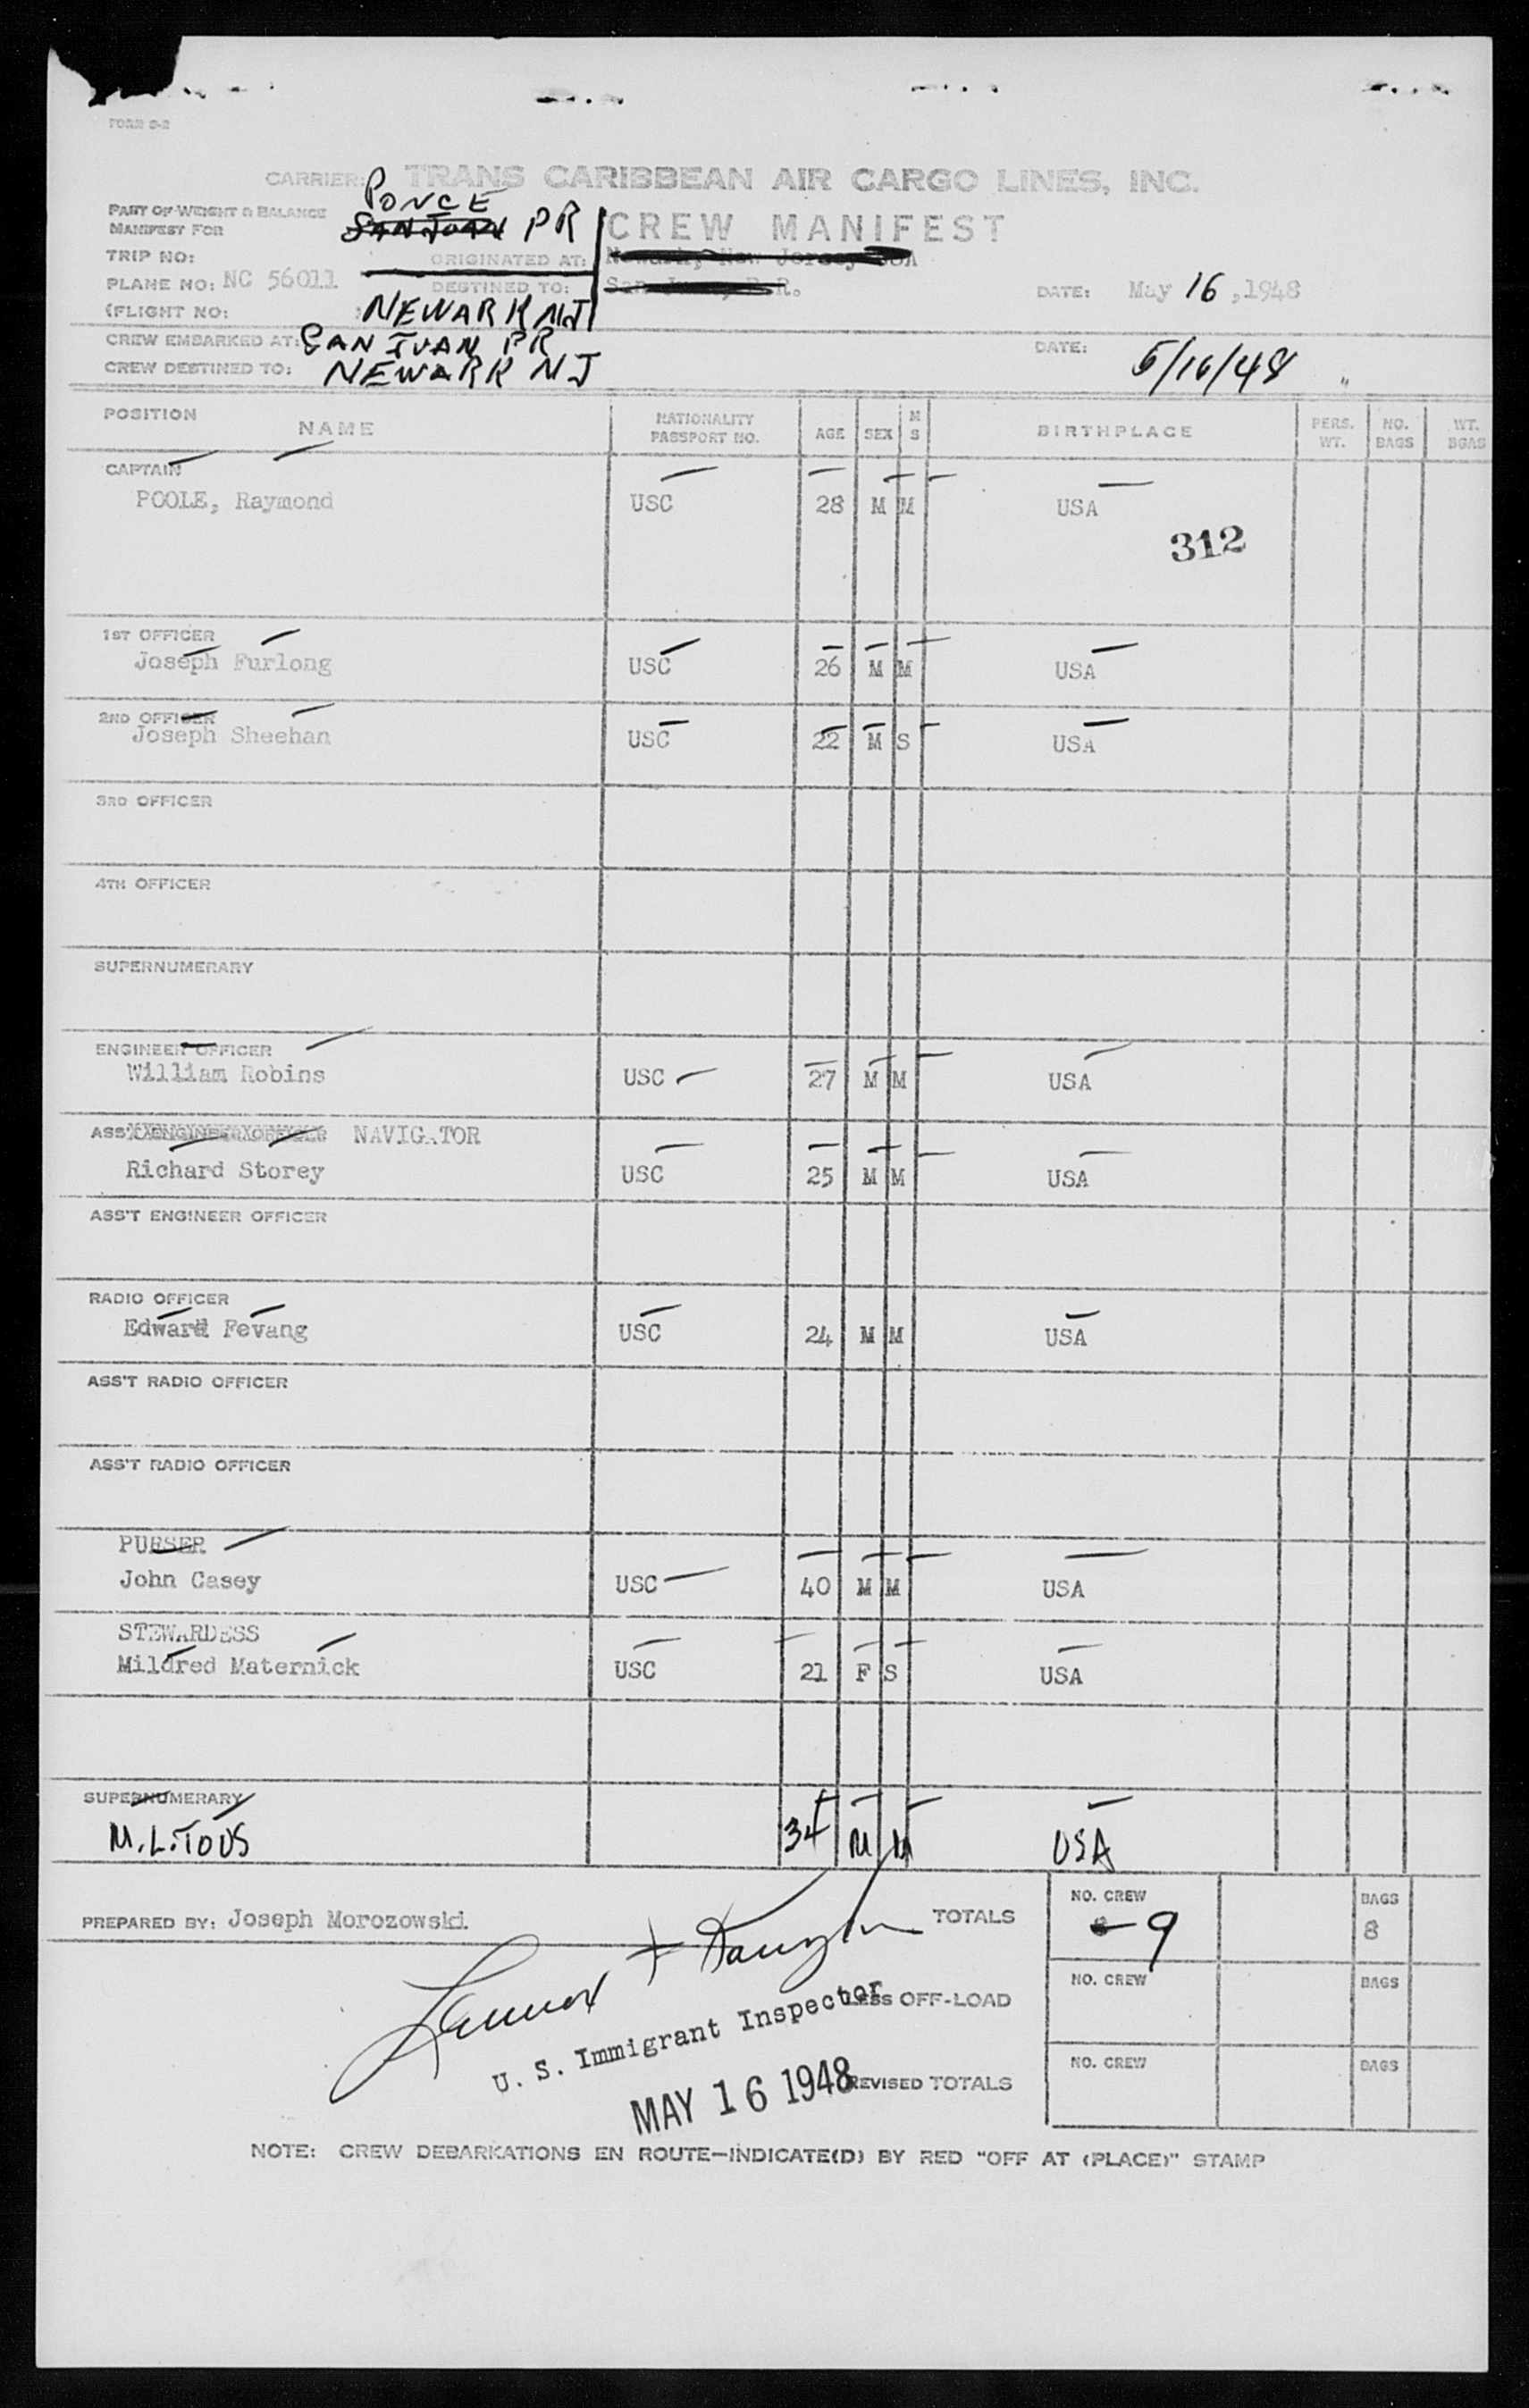 FORM C-2
CARRIER: TRANS CARIBBEAN AIR CARGO LINES, INC.
PONCE
PART OF WEIGHT & BALANCE
MANIFEST FOR SAN JUAN PR CREW MANIFEST
TRIP NO: ORIGINATED AT: Newark, New Jersey USA
PLANE NO: NC 56011 DESTINED TO: San Juan, P.R. DATE: May 16, 1948
(FLIGHT NO: ) NEWARK NJ
CREW EMBARKED AT: SAN JUAN PR DATE: 5/16/48 "
CREW DESTINED TO: NEWARK NJ
POSITION NAME NATIONALITY PASSPORT NO. AGE SEX M S BIRTHPLACE PERS. WT. NO. BAGS WT. BGAS
CAPTAIN
POOLE, Raymond USC 28 M M USA
312
1ST OFFICER
Joseph Furlong USC 26 M M USA
2ND OFFICER
Joseph Sheehan USC 22 M S USA
3RD OFFICER
4TH OFFICER
SUPERNUMERARY
ENGINEER OFFICER
William Robins USC 27 M M USA
ASS'T ENGINEER OFFICER NAVIGATOR
Richard Storey USC 25 M M USA
ASS'T ENGINEER OFFICER
RADIO OFFICER
Edward Fevang USC 24 M M USA
ASS'T RADIO OFFICER
ASS'T RADIO OFFICER
PURSER
John Casey USC 40 M M USA
STEWARDESS
Mildred Maternick USC 21 F S USA
SUPERNUMERARY
M. L. TOUS 34 M M USA
PREPARED BY: Joseph Morozowski TOTALS NO. CREW 8 9 BAGS 8
LESS OFF-LOAD NO. CREW BAGS
U. S. Immigrant Inspector
MAY 16 1948
REVISED TOTALS NO. CREW BAGS
NOTE: CREW DEBARKATIONS EN ROUTE—INDICATE(D) BY RED "OFF AT (PLACE)" STAMP